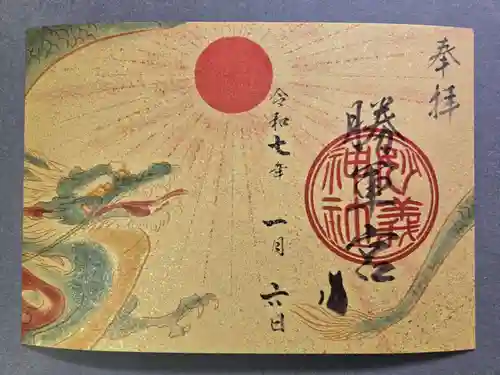 奉拝
勝軍宮
妙義神社
令和七年
一月
六日